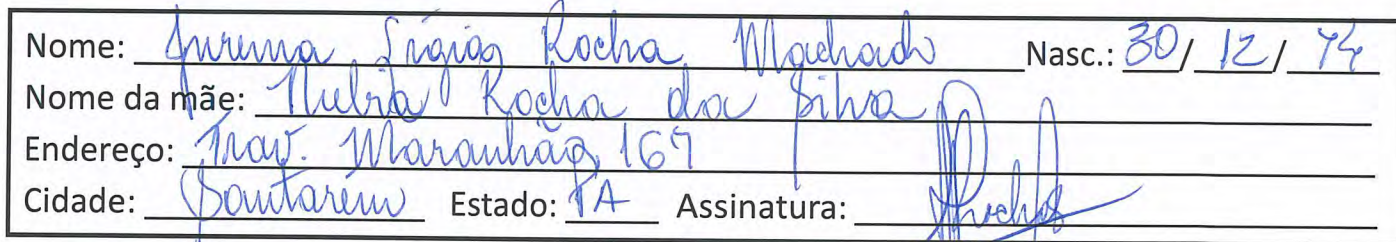 Nome: Jurema Lígia Rocha Machado Nasc.: 30/ 12 / 74
Nome da mãe: Nubia Rocha da Silva
Endereço: Trav. Maranhão, 167
Cidade: Santarem Estado: PA Assinatura: